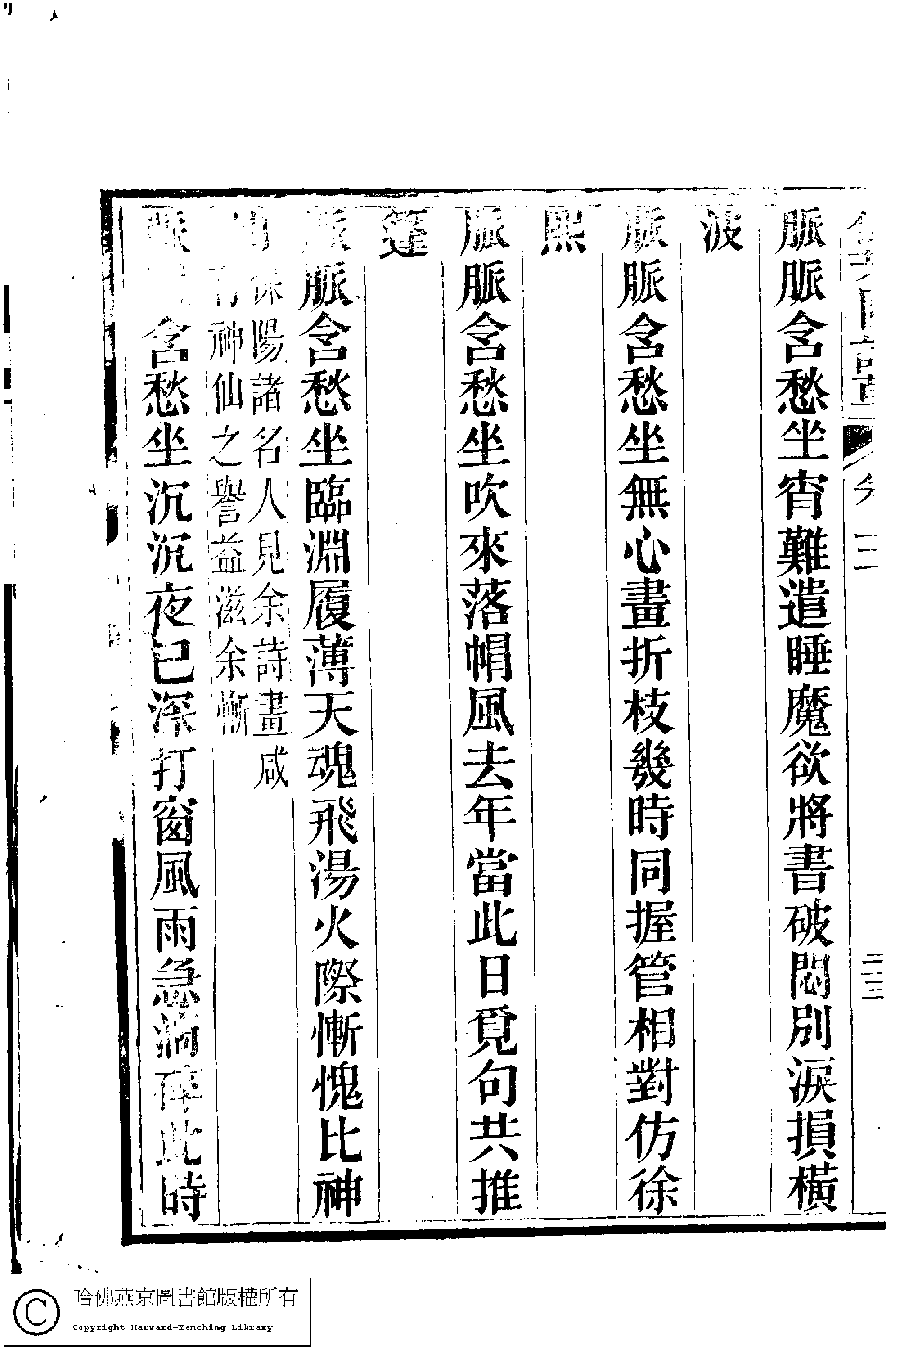 卷三
二三
脈脈含愁坐宵難遣睡魔欲將書破悶別淚損橫
波
脈脈含愁坐無心畫折枝幾時同握管相對仿徐
熙
脈脈含愁坐吹來落帽風去年當此日覓句共推
篷
脈脈含愁坐臨淵履薄天魂飛湯火際慚愧比神
陽諸名人見余詩畫咸
有神仙之譽益滋余慚
含愁坐沉沉夜已深打窗風雨急滴碎此時
哈佛燕京圖書館版權所有
Copyright Harvard-Yenching Library